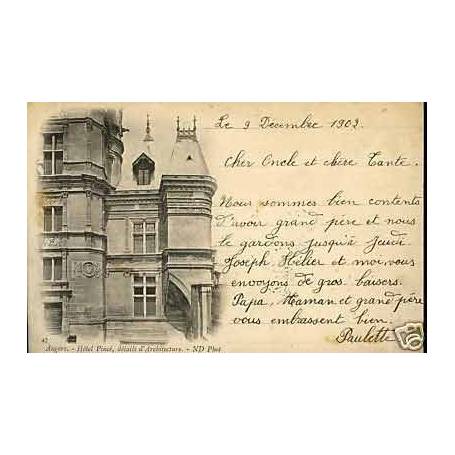 Le 9 Décembre 1902.
Cher Oncle et chère Tante.
Nous sommes bien contents
d'avoir grand père et nous
le gardons jusqu'à jeudi.
Joseph, Hélier et moi, vous
envoyons de gros baisers.
Papa, Maman et grand père
vous embrassent bien.
Paulette
47
Angers. - Hôtel Pincé, détails d'Architecture. - ND Phot